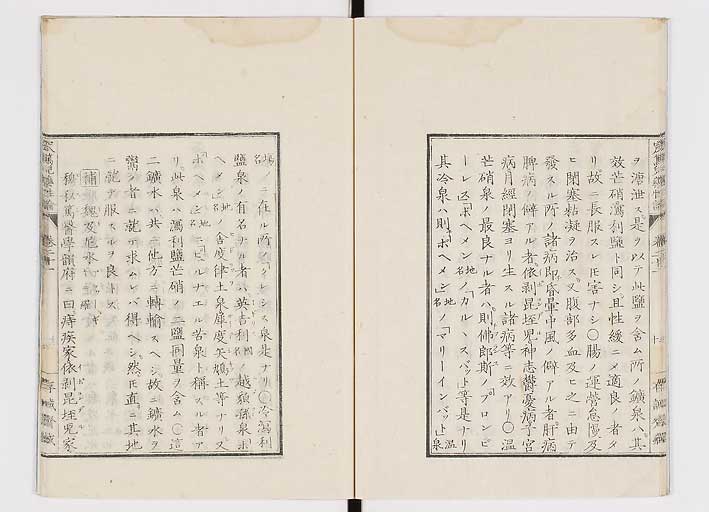 ヲ瀉泄ス是ヲ以テ此鹽ヲ含ム所ノ鑛泉ハ其
效芒硝瀉利鹽ト同シ且性緩ニメ適良ノ者タ
リ故ニ長服スレ𪜈害ナシ〇腸ノ運營怠慢及
ヒ閉塞粘凝ヲ治ス又腹部多血及ヒ之ニ由テ
發スル所ノ諸病即昏暈中風ノ僻アル者肝病
脾病ノ僻アル者依剥昆垤兒神志鬱憂病子宮
病月經閉塞ヨリ生スル諸病等ニ效アリ〇温
芒硝泉ノ最良ナル者ハ則佛郎斯ノプロンビ
ーレスボヘメン地名ノカルヽスバット等是ナリ
其冷泉ハ則ボヘメン地名ノマリーインバット泉
場名ノニ在ル所ノクレシス泉是ナリ〇冷瀉利
鹽泉ノ有名ナル者ハ英吉利國ノ越頗孫泉ボ
ヘメン地名ノ含度律土泉
ボヘメン地名ニビルナエル苦泉ト稱スル者ア
リ此泉ハ瀉利鹽芒硝ノ二鹽同量ヲ含ム〇這
二鑛水ハ共ニ他方ニ轉輸スヘシ故ニ鑛水ヲ
鬻ノ者ニ就テ求ムレバ得ヘシ然𪜈直ニ其地
ニ就テ服スルヲ良トス
補
鵞篤醫學韻府ニ曰痔疾家依剥昆垤兒家